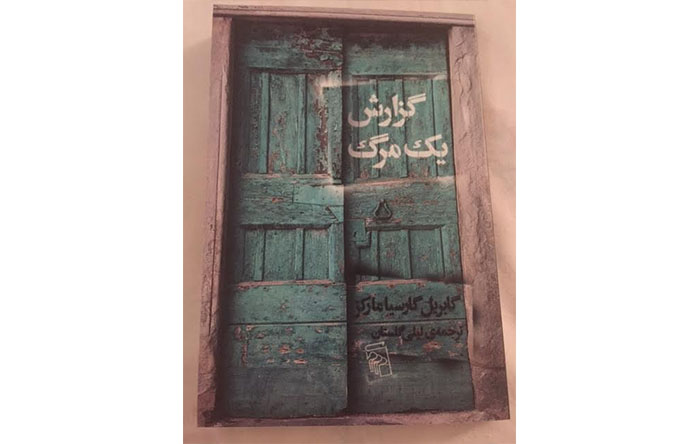 گزارش
یک مرگ
گابریل گارسیا مارکز
ترجمه‌ی لیلی گلستان